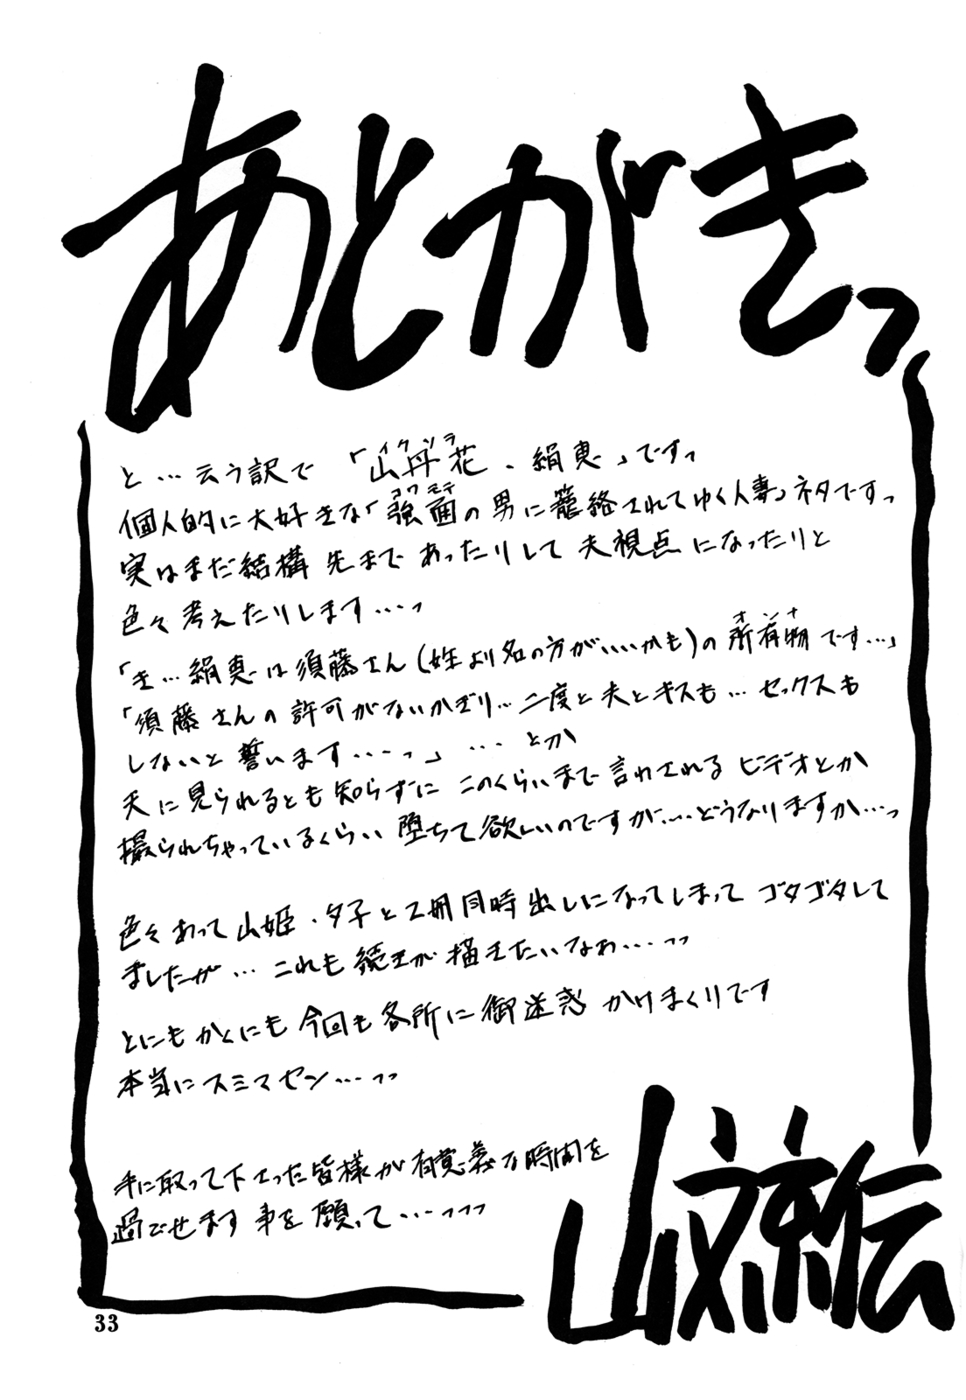 あとがきっ
と…云う訳で「山丹花、絹恵」ですっ
イクソラ
個人的に大好きな「強面の男に籠絡されてゆく人妻」ネタですっ
コワモテ
実はまだ結構先まであったりして夫視点になったりと
色々考えたりします…っ
「き…絹恵は須藤さん(姓より名の方がいいかも)の所有物です…」
オンナ
「須藤さんの許可がないかぎり…二度と夫とキスも…セックスも
しないと誓います……っ」…とか
夫に見られるとも知らずにこのくらいまで言わされるビデオとか
撮られちゃっているくらい堕ちて欲しいのですが…どうなりますか…っ
色々あって山姫・夕子と2冊同時出しになってしまってゴタゴタして
ましたが…これも続きが描きたいなぁ…っっ
とにもかくにも今回も各所に御迷惑かけまくりです
本気にスミマセン…っっ
手に取って下さった皆様が有意義な時間を
過ごせます事を願って…っっっ
山文京伝
33